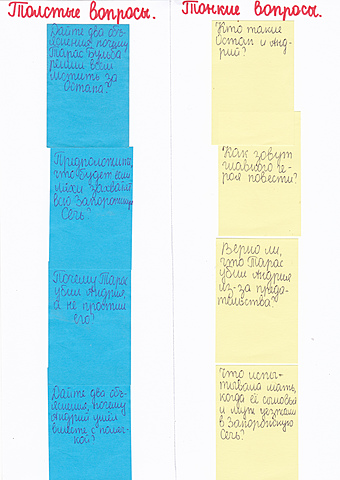 Толстые вопросы.
Дайте два объ-
яснения, почему
Тарас Бульба
решил всем
мстить за
Остапа?
Предположите,
что будет если
ляхи захватят
всю Запорожскую
Сечь?
Почему Тарас
убил Андрия,
а не простил
его?
Дайте два объ-
яснения, почему
Андрий ушёл
вместе с полеч-
кой?
Тонкие вопросы.
Кто такие
Остап и Анд-
рий?
Как зовут
главного ге-
роя повести?
Верно ли,
что Тарас
убил Андрия
из-за преда-
тельства?
Что испы-
тывала мать,
когда её сыновья
и муж уезжали
в Запорожскую
Сечь?